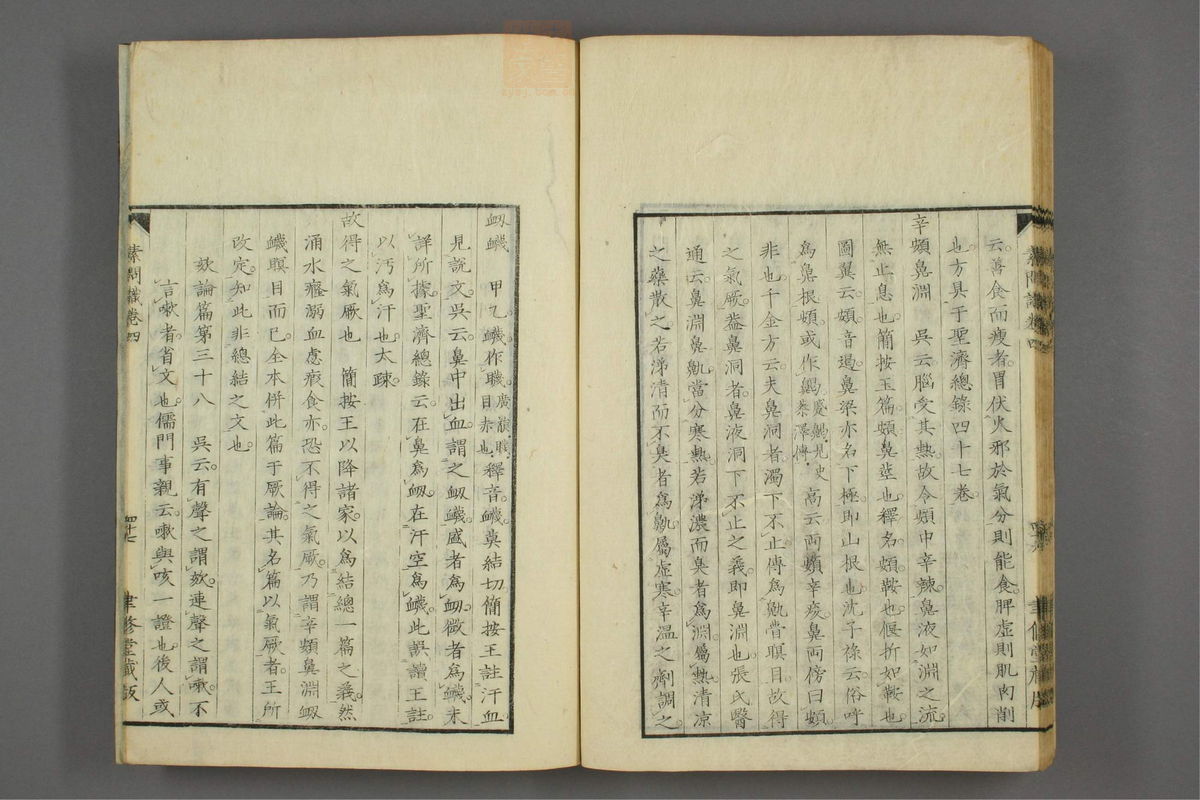 云善食而瘦者胃伏火邪於氣分則能食脾虛則肌肉削
也方具于聖濟總錄四十七卷
辛頞鼻淵　吳云腦受其熱故令頞中辛辣鼻液如淵之流
無止息也簡按玉篇頞鼻莖也釋名頞鞍也偃折如鞍也
圖翼云頞音遏鼻梁亦名下極即山根也沈子祿云俗呼
為鼻根頞或作齃蹙齃見史蔡澤傳高云兩頞辛痠鼻兩傍曰頞
非也千金方云夫鼻洞者濁下不止傳為鼽瞢瞑目故得
之氣厥蓋鼻洞者鼻液洞下不止之義即鼻淵也張氏醫
通云鼻淵鼻鼽當分寒熱若涕濃而臭者為淵屬熱清凉
之藥散之若涕清而不臭者為鼽屬虛寒辛溫之劑調之
衂衊　甲乙衊作䁾廣韻䁾目赤也釋音衊莫結切簡按王註汗血
見說文吳云鼻中出血謂之衂衊盛者為衂微者為衊未
詳所據聖濟總錄云在鼻為衂在汗空為衊此誤讀王註
以汚為汗也太疎
故得之氣厥也　簡按王以降諸家以為結總一篇之義然
涌水癃溺血虙瘕食亦恐不得之氣厥乃謂辛頞鼻淵衂
衊瞑目而已全本併此篇于厥論其名篇以氣厥者王所
改定知此非總結之文也
欬論篇第三十八　吳云有聲之謂欬連聲之謂嗽不
言嗽者省文也儒門事親云嗽與咳一證也後人或
素問識卷四
四十七
聿修堂藏板
素問識卷四